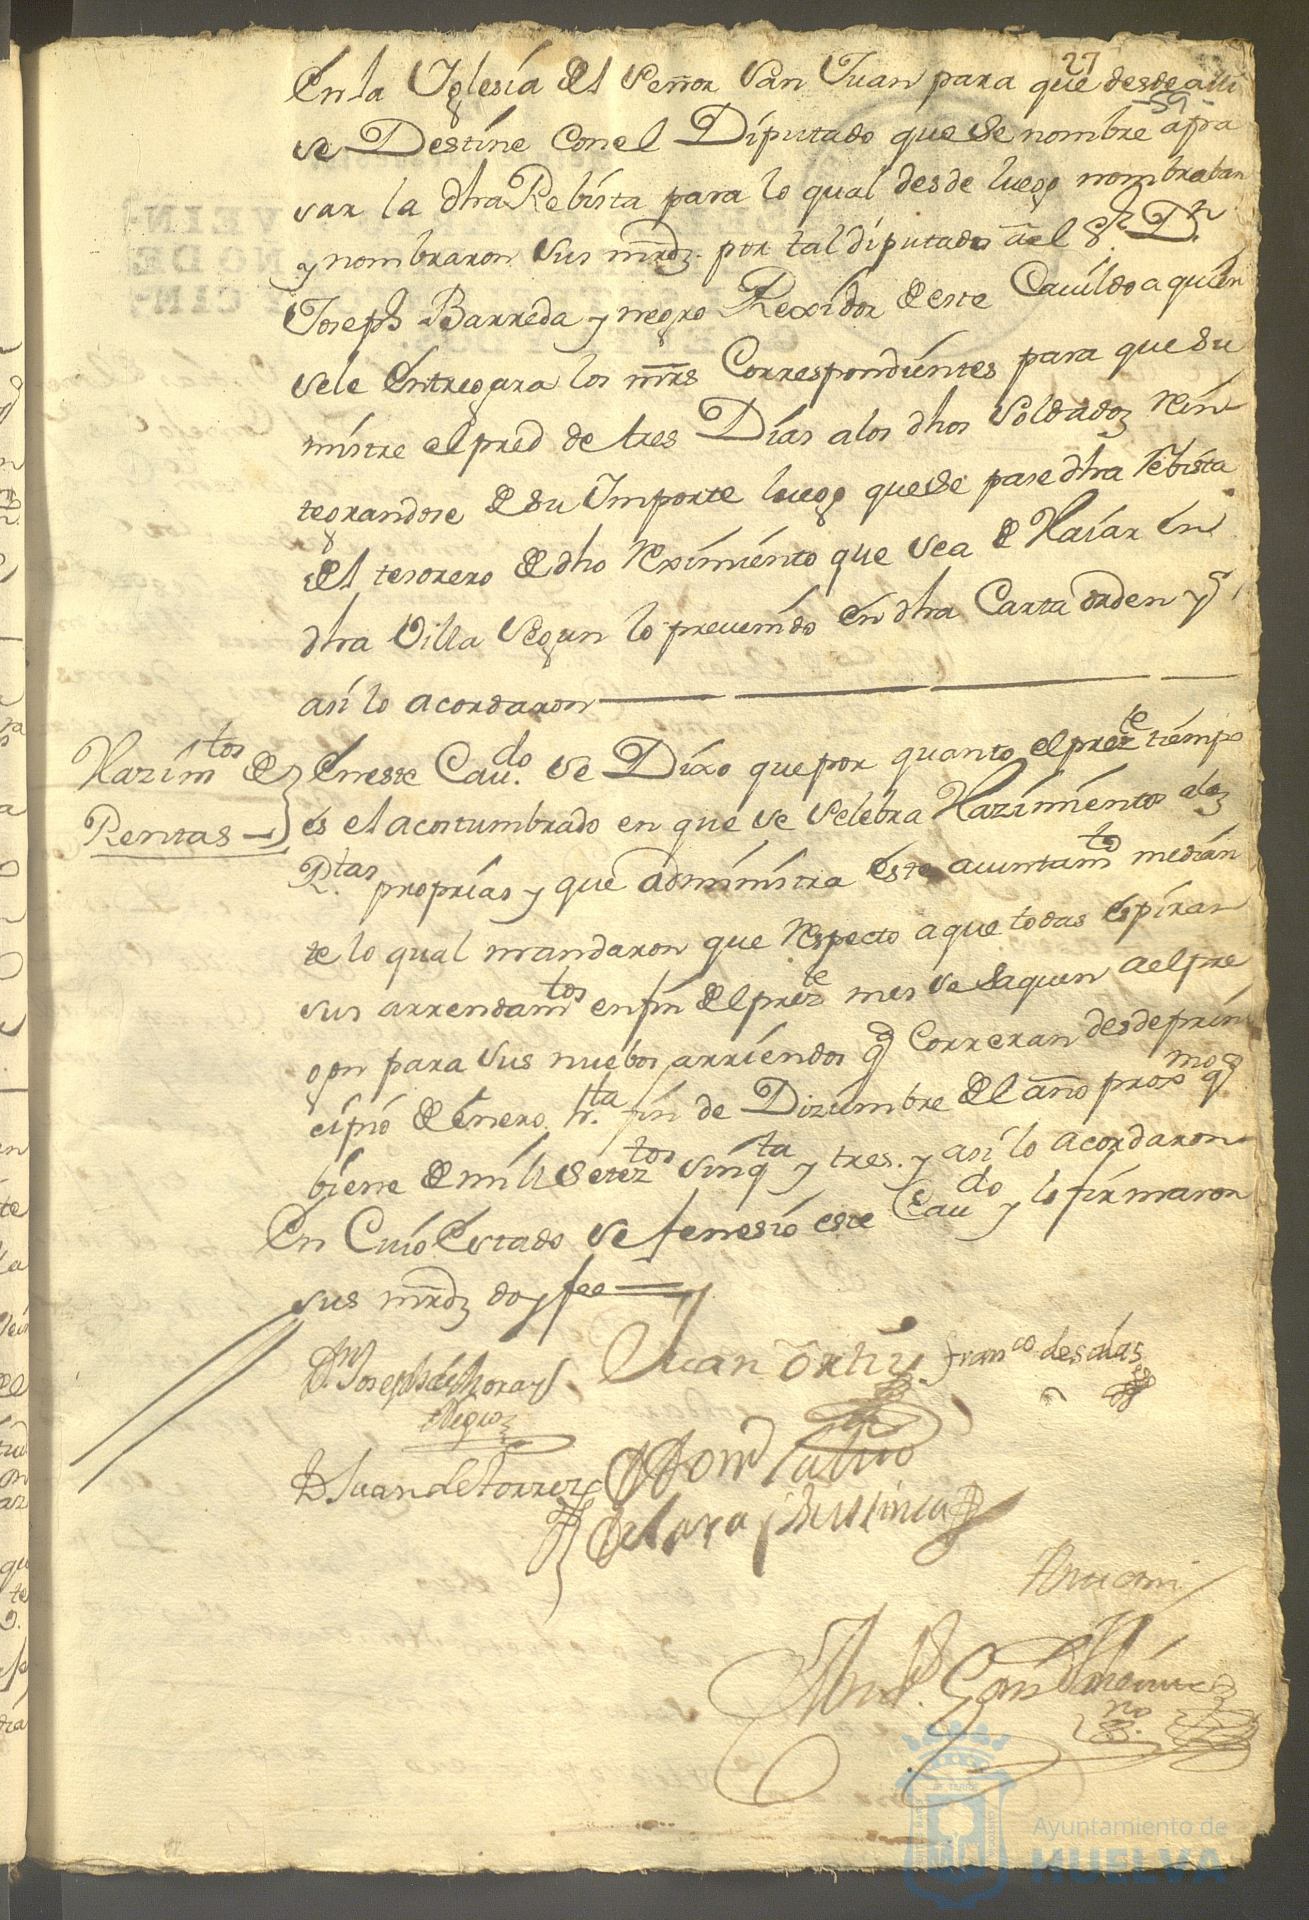 27
59
En la Yglesia del Señor San Juan para que desde alli
se Destine con el Diputado que se nombre a pa
sar la dha Rebista para lo qual desde luego nombraban
y nombraron sus mrdz. por tal diputado a el Sr. Dn.
Joseph Barreda y negro Rexidor de este Cavildo a quien
se le entregara los mrs Correspondientes para que su
ministre el pred de tres Dias a los dhos Soldadoz Rein
tegrandose de su Importe luego que se pase dha Rebista
del tesorero de dho Reximiento que sea de Haiar en
dha Villa segun lo prevenido en dha Carta orden y
asi lo acordaron
Hazimtos de
Rentas
En este Caudo. se Dixo que por quanto el prezte tiempo
es el acostumbrado en que se selebra Hazimientos a laz
Rtas proprias y que administra este aiuntamto median
te lo qual mandaron que respecto a que todas espiran
sus arrendamtos en fin del prezte mes se saquen a el pre
gon para sus nuebos arriendos q correran desde prin
cipio de enero hta fin de Diziembre del año proxmo q
biene de mill seteztos sinqta y tres. y asi lo acordaron
En Cuio Estado se fenesio este Caudo y lo firmaron
sus mrdz doy fee
Dn. Joseph
Negro
Juan Ortiz
Franco de salas
D Juan de Torres
de Lara
Ante mi
Ayuntamiento de
HUELVA